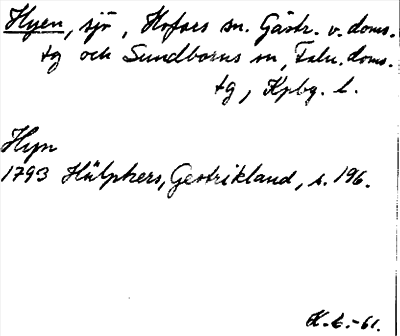 Hyen, sjö, Hofors sn. Gästr. v. doms.
tg och Sundborns sn, Falu. doms.
tg, Kpbg. l.
Hyn
1793 Hülphers, Gestrikland, s. 196.
K.L.-61.